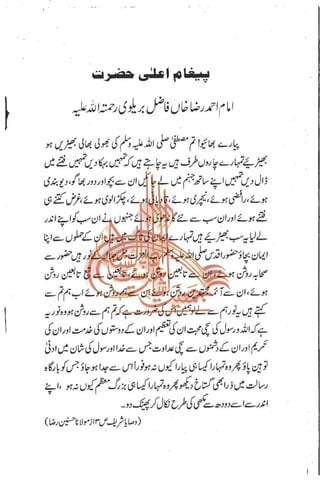 پیغام اعلیٰ حضرت
امام احمد رضا خاں فاضل بریلوی رحمتہ اللہ علیہ
پیارے بھائیو! تم مصطفیٰ صلی اللہ علیہ وسلم کی بھولی بھالی بھیڑیں ہو
بھیڑیئے تمہارے چاروں طرف ہیں یہ چاہتے ہیں کہ تمہیں بہکا دیں تمہیں فتنے میں
ڈال دیں تمہیں اپنے ساتھ جہنم میں لے جائیں ان سے بچو اور دور بھاگو، دیوبندی
ہوئے، رافضی ہوئے، نیچری ہوئے، چکڑالوی ہوئے، غرض کتنے ہی
فتنے ہوئے اور ان سب سے نئے گاندھوی ہوئے جنہوں نے ان سب کو اپنے اندر
لے لیا یہ سب بھیڑیئے ہیں تمہارے ایمان کی تاک میں ہیں ان کے حملوں سے اپنا
ایمان بچاؤ حضور اقدس صلی اللہ علیہ وسلم رب العزت جل جلالہ کے نور ہیں حضور سے
صحابہ روشن ہوئے، ان سے تابعین روشن ہوئے، تابعین سے تبع تابعین روشن
ہوئے، ان سے ائمہ مجتہدین روشن ہوئے ان سے ہم روشن ہوئے اب ہم تم سے
کہتے ہیں یہ نور ہم سے لے لو ہمیں اس کی ضرورت ہے کہ تم ہم سے روشن ہو وہ نور یہ
ہے کہ اللہ و رسول کی سچی محبت ان کی تعظیم اور ان کے دوستوں کی خدمت اور ان کی
تکریم اور ان کے دشمنوں سے سچی عداوت جس سے خدا اور رسول کی شان میں ادنیٰ
توہین پاؤ پھر وہ تمہارا کیسا ہی پیارا کیوں نہ ہو فوراً اس سے جدا ہو جاؤ جس کو بارگاہ
رسالت میں ذرا بھی گستاخ دیکھو پھر وہ تمہارا کیسا ہی بزرگ معظم کیوں نہ ہو، اپنے
اندر سے اسے دودھ سے مکھی کی طرح نکال کر پھینک دو۔
(وصایا شریف ص ۱۳ از مولانا حسنین رضا)